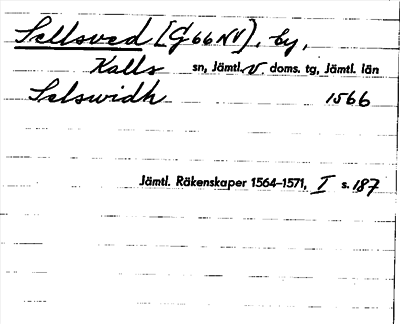 Sällsved [G66NV], by,
Kalls sn, Jämtl. V. doms. tg, Jämtl. län
Selswidh 1566
Jämtl. Räkenskaper 1564–1571, I s. 187